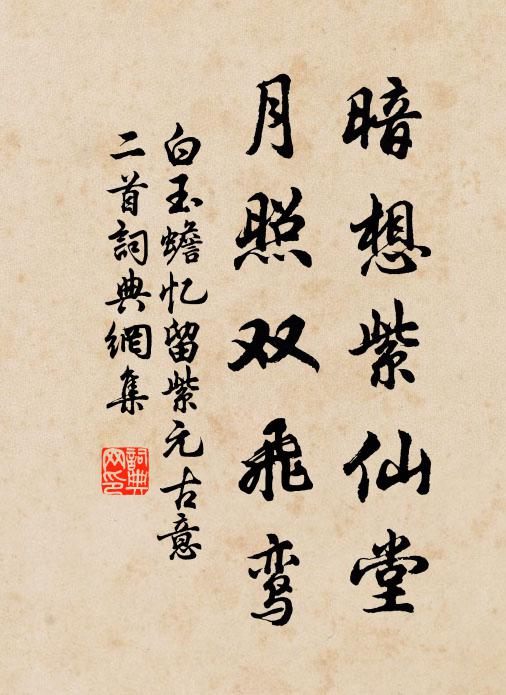 暗想紫仙堂
月照双飛鸾
白玉蟾忆留紫元古意
二首詞典網集
詞典
网印